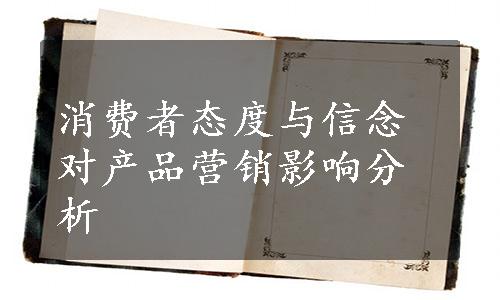 消费者态度与信念
对产品营销影响分
析